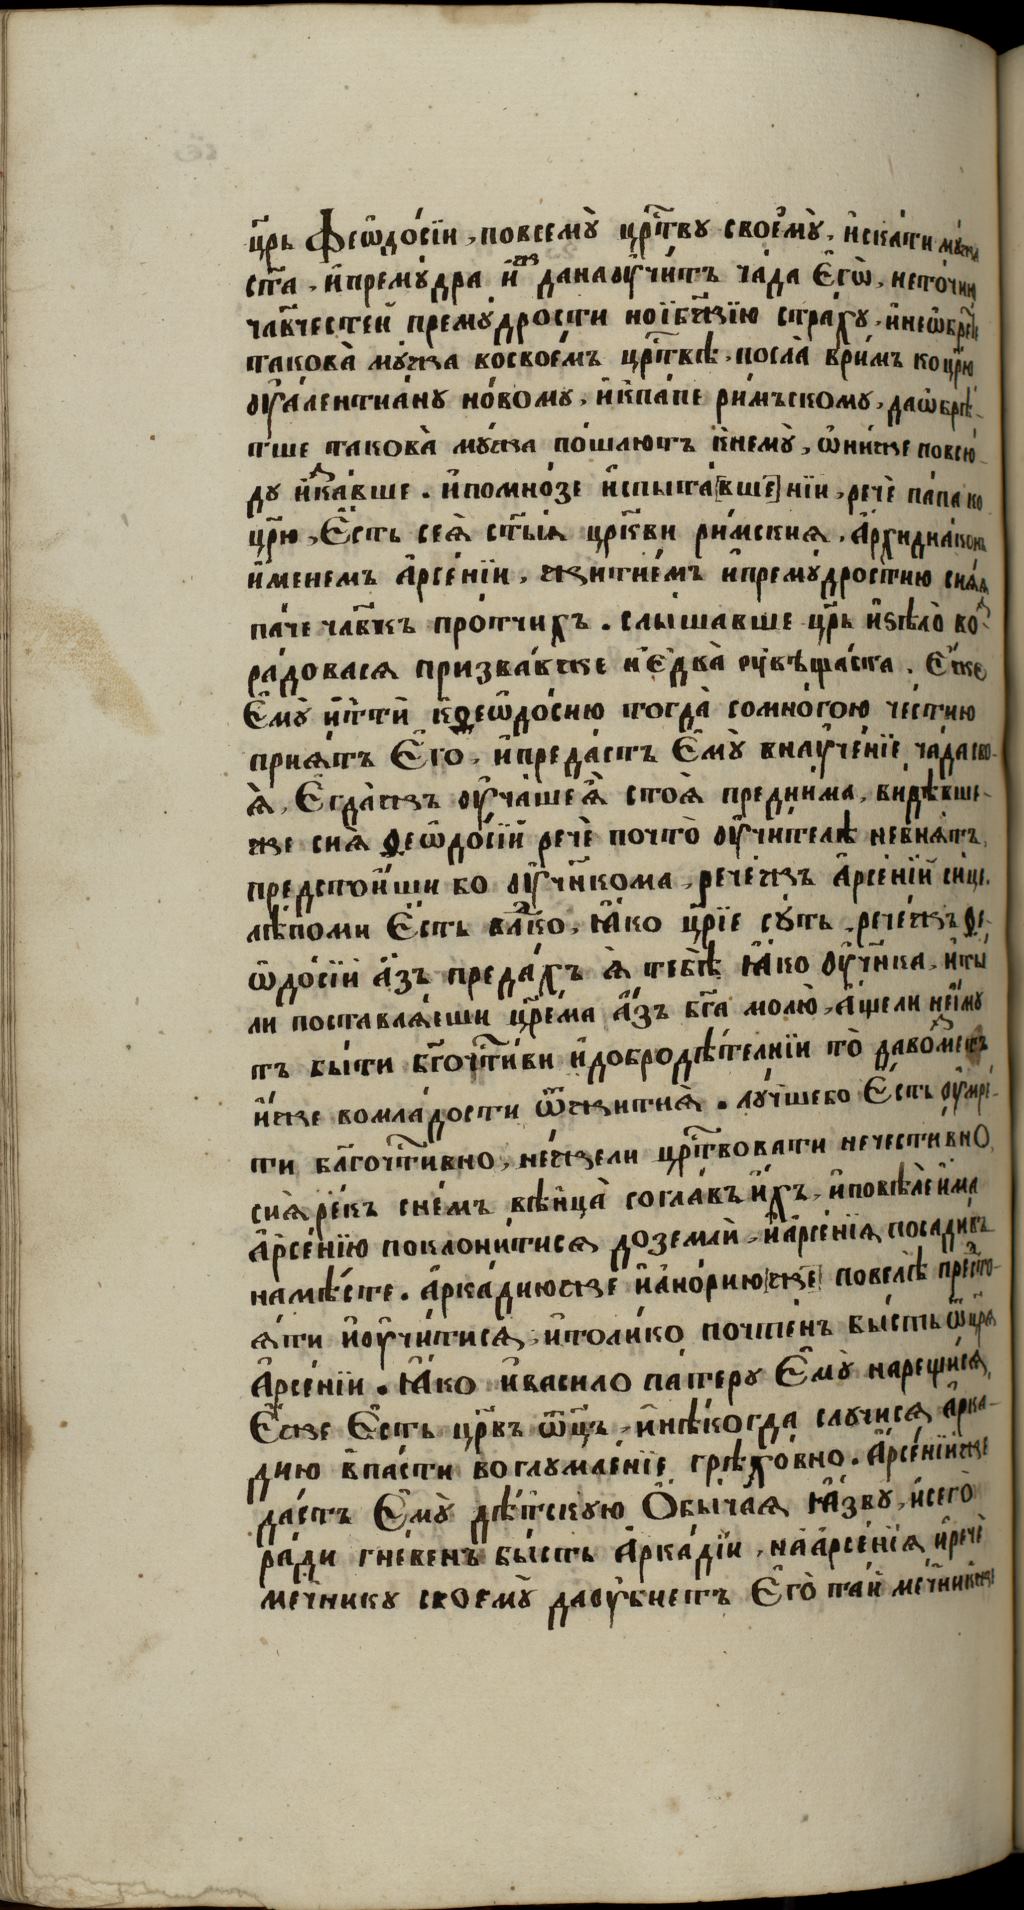 цр҃ь Ѳеѡдо́сїи, повсемꙋ̀ црⷭ҇тву своемꙋ̀, и҆ска́ти му́жа
ст҃а, и҆премꙋ́дра и҆ⷤ данаѹ҆чи́тъ ча́да є҆гѡ̀, нето́чии
чл҃вчесќей премꙋ́дрости но и҆бж҃ію стра́хꙋ, и҆неѡ҆брѣ́те
такова̀ мꙋ́жа восвое́мъ црⷭ҇твѣ, посла̀ врим́ъ ко цр҃ю
ѹ҆алентиа́ну но́вому, и҆кпа́пе ри́мъскому, даѡ҆брѣ́-
тше такова̀ мꙋ́жа по́шлютъ кнемꙋ̀, ѡ҆ни́же повсю́-
ду и҆ска́вше. и҆помно́зе и҆спыта́[вше]нїи, речѐ па́па ко
цр҃ю, є҆́сть сея̀ ст҃ы́ѧ цр҃кви ри́мскиѧ, а҆рхидиа́конъ
и҆́менемъ а҆рсе́нїи, житие́мъ и҆премꙋ́дростию сиѧ́ѧ
па́че чл҃вкъ про́тчихъ. слы́шавше цр҃ь и҆ѕѣлѡ̀ во
ра́довасѧ призва́вже и҆ є҆два̀ ѹ҆вѣща́ста. є҆́же
є҆мꙋ̀ и҆ттѝ кѳеѡдо́сию тогда̀ сомно́гою че́стию
приѧ́тъ є҆го̀, и҆преда́стъ є҆мꙋ̀ внаѹ҆че́нїе ча́да сво-
ѧ̀, є҆гда́жъ ѹ҆ча́шеѧ̀ стоѧ̀ предни́ма, видѣ́вше-
же сиѧ̀ ѳеѡдо́сїи речѐ почто̀ ѹ҆чи́телѣ невнѧ́тъ,
предстои́ши бо ѹ҆чн҃кома, рече́жъ а҆рсе́нїй си́це.
лѣ́поми є҆́сть влⷣко, ꙗ҆́ко цр҃їе сꙋ́ть, рече́жъ ѳе-
ѡдо́сїй а҆́зъ преда́хъ ѧ҆̀ тебѣ̀ ꙗ҆́ко ѹ҆чн҃ка, и҆ты̀
ли поставлѧ́еши цр҃е́ма а҆́зъ бг҃а молю̀, а҆́щели не и҆́му
тъ бы́ти бл҃гочⷭ҇тиви и҆добродѣ́телнїи то̀ даво́зметъ
и҆́же вомла́дости ѿжитиѧ̀. лꙋ́чшебо є҆́сть ѹ҆мре́-
ти бл҃гочⷭ҇тивно, не́жели црⷭ҇твовати нечести́вно
сиѧ̀ ре́къ сне́мъ вѣнца̀ согла́въ и҆́хъ, и҆повелѣ̀ и҆ма
а҆рсе́нїю поклони́тисѧ доземлѝ, и҆а҆рсе́нїѧ посади́въ
намѣ́сте. а҆рка́диюже и҆а҆но́рию[же] повелѣ̀ предсто-
ѧ́ти и҆ѹ҆чи́тисѧ, и҆толи́ко почте́нъ бы́сть ѿцр҃ѧ
а҆рсе́нїи. ꙗ҆́ко и҆васило па́теру є҆мꙋ̀ нарещи́сѧ,
є҆́же є҆́сть цр҃въ ѻ҆ц҃ъ, и҆нѣ́когда случи́сѧ а҆рка-
дию впа́сти воглумле́нїе грѣхо́вно. а҆рсе́нїйже
да́стъ є҆мꙋ̀ дѣ́тскую ѻ҆бы́чаѧ ꙗ҆́зву, и҆сего̀
ра́ди гне́венъ бы́сть а҆рка́дїи, наа҆рсе́нїѧ и҆речѐ
ме́чнику своемꙋ̀ даѹ҆бие́тъ є҆го̀ та́й ме́чникже